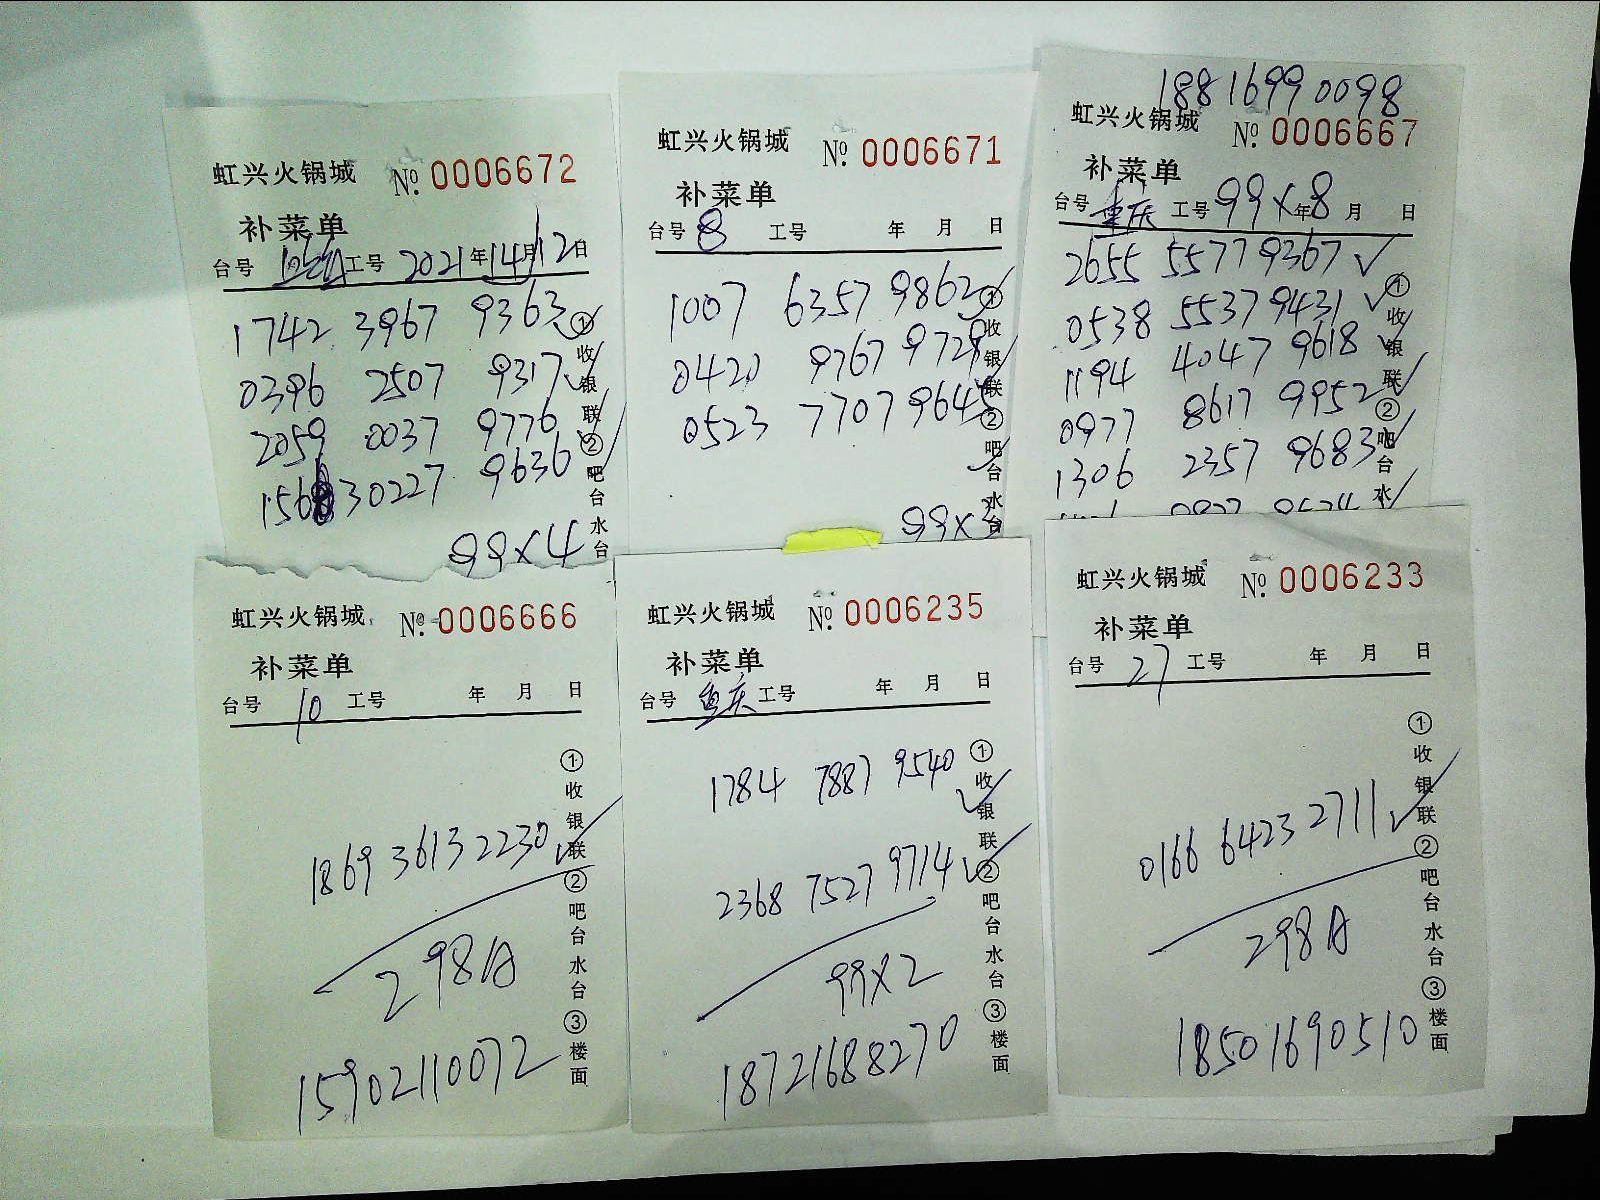 虹兴火锅城 №. 0006672
补菜单
台号 工号 2021年14月12日
1742 3967 9363
0396 2507 9317
2059 0037 9776
1568 30227 9636
99×4
①收银联②吧台水台
虹兴火锅城 №. 0006671
补菜单
台号 8 工号 年 月 日
1007 6357 9862
0420 9767 9729
0523 7707 9645
99×3
①收银联②吧台水台
18816990098
虹兴火锅城 №. 0006667
补菜单
台号 重庆 工号 99×8 年 月 日
2655 5577 9367
0538 5537 9431
1194 4047 9618
0977 8617 9952
1306 2357 9683
①收银联②吧台水
虹兴火锅城 №. 0006666
补菜单
台号 10 工号 年 月 日
1869 3613 2230
298A
15902110072
①收银联②吧台水台③楼面
虹兴火锅城 №. 0006235
补菜单
台号 重庆 工号 年 月 日
1784 7887 9540
2368 7527 9714
99×2
18721688270
①收银联②吧台水台③楼面
虹兴火锅城 №. 0006233
补菜单
台号 27 工号 年 月 日
0166 6423 2711
298A
18501690510
①收银联②吧台水台③楼面